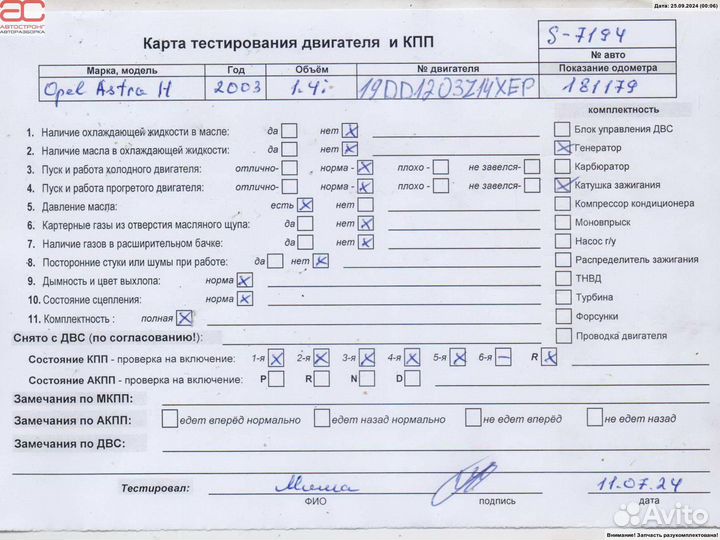 Дата: 25.09.2024 (00:06)
ас
АВТОСТРОНГ
АВТОРАЗБОРКА
Карта тестирования двигателя и КПП
S-7194
№ авто
Марка, модель Год Объём № двигателя Показание одометра
Opel Astra H 2003 1.4i 19DD1203Z14XEP 181179
комплектность
1. Наличие охлаждающей жидкости в масле: да нет Блок управления ДВС
2. Наличие масла в охлаждающей жидкости: да нет Генератор
3. Пуск и работа холодного двигателя: отлично- норма - плохо - не завелся- Карбюратор
4. Пуск и работа прогретого двигателя: отлично- норма - плохо - не завелся- Катушка зажигания
5. Давление масла: есть нет Компрессор кондиционера
6. Картерные газы из отверстия масляного щупа: да нет Моновпрыск
7. Наличие газов в расширительном бачке: да нет Насос г/у
8. Посторонние стуки или шумы при работе: да нет Распределитель зажигания
9. Дымность и цвет выхлопа: норма ТНВД
10. Состояние сцепления: норма Турбина
11. Комплектность : полная Форсунки
Снято с ДВС (по согласованию!): Проводка двигателя
Состояние КПП - проверка на включение: 1-я 2-я 3-я 4-я 5-я 6-я R
Состояние АКПП - проверка на включение: P R N D
Замечания по МКПП:
Замечания по АКПП: едет вперёд нормально едет назад нормально не едет вперёд не едет назад
Замечания по ДВС:
Тестировал: Миша 11.07.24
ФИО подпись дата
Avito
Внимание! Запчасть разукомплектована!